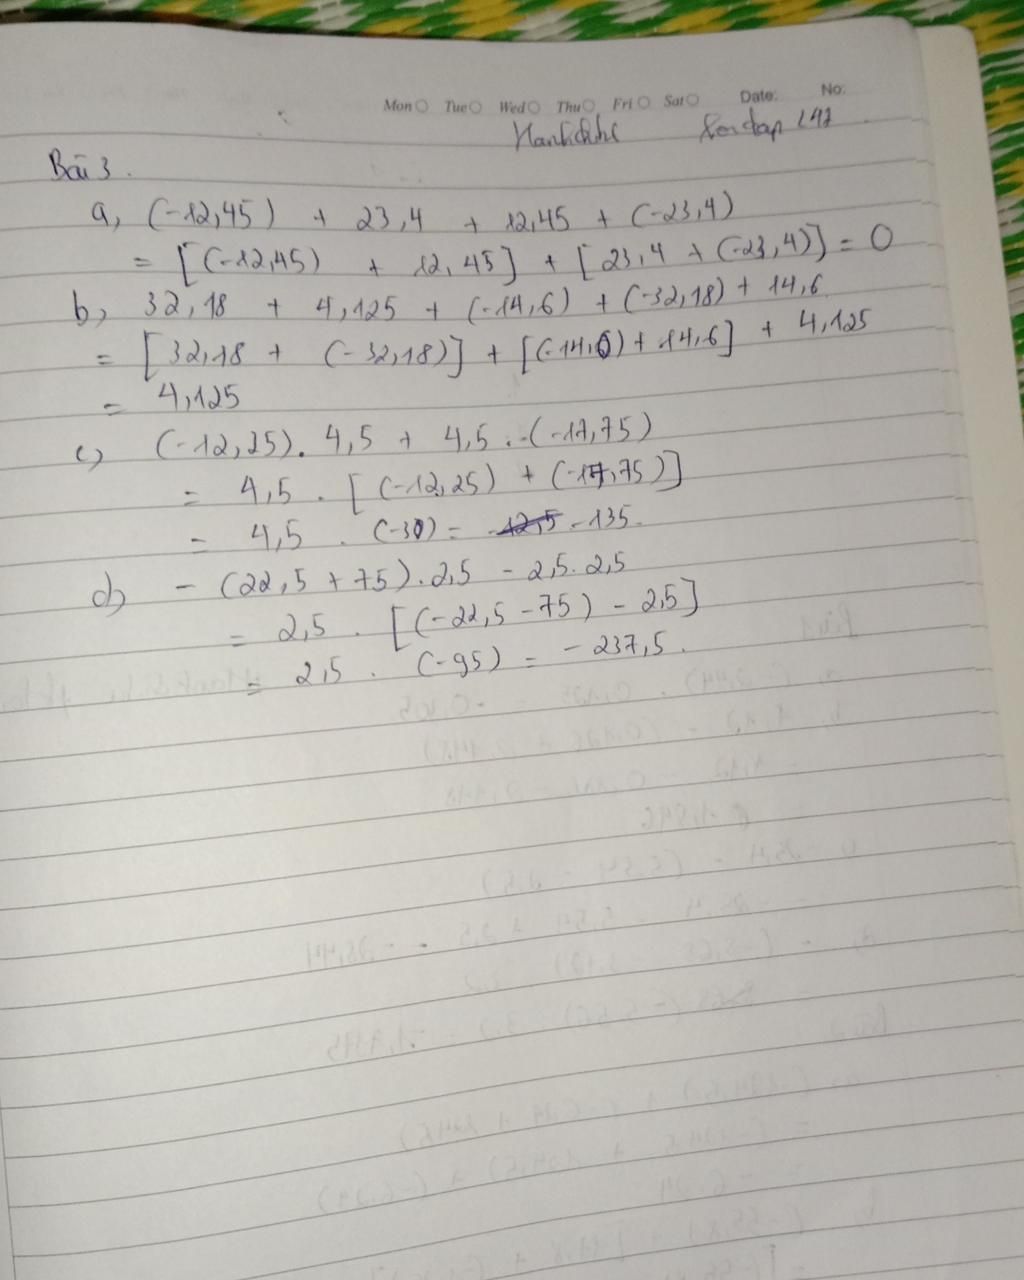 Mon Tue Wed Thu Fri Sat Date: No:
Bài 3.
a, (-12,45) + 23,4 + 12,45 + (-23,4)
= [(-12,45) + 12,45] + [23,4 + (-23,4)] = 0
b, 32,18 + 4,125 + (-14,6) + (-32,18) + 14,6
= [32,18 + (-32,18)] + [(-14,6) + 14,6] + 4,125
= 4,125
c, (-12,25). 4,5 + 4,5 . (-17,75)
= 4,5 . [(-12,25) + (-17,75)]
= 4,5 . (-30) = -135.
d, - (22,5 + 75). 2,5 - 2,5. 2,5
= 2,5 . [(-22,5 - 75) - 2,5]
= 2,5 . (-95) = - 237,5.